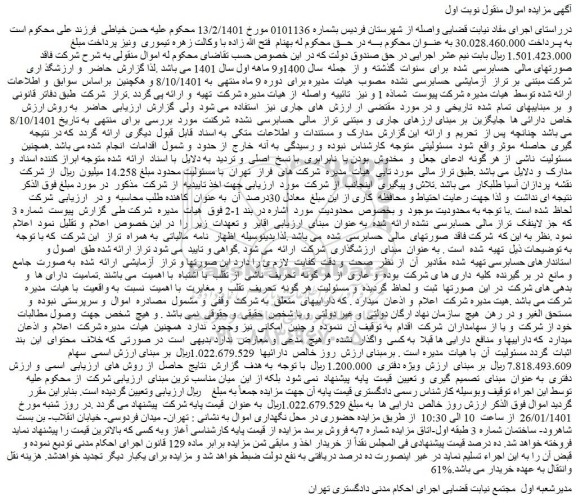 آگهی مزایده اموال منقول نوبت اول
درراستای اجرای مفاد نیابت قضایی واصله از شهرستان فردیس بشماره 0101136 مورخ 13/2/1401 محکوم علیه حسن خیاطی فرزند علی محکوم است
به پرداخت 30.028.460.000 به عنوان محکوم به در حق محکوم له بهنام فتح الله زاده با وکالت زهره تیموری ونیز پرداخت مبلغ
1.501.423.000ریال بابت نیم عشر اجرایی در حق صندوق دولت که در این خصوص حسب تقاضای محکوم له اموال منقولی به شرح شرکت فاقد
صورتهای مالی حسابرسی شده برای سنوات گذشته و از جمله سال 1400و9 ماهه اول سال 1401 می باشد .لذا گزارش حاضر و ارزشگذاری
شرکت مبتنی بر تراز آزمایشی حسابرسی نشده مصوب هیات مدیره برای دوره 9 ماه منتهی به 8/10/1401 و همچنین براساس سوابق و اطلاعات
ارائه شده توسط هیات مدیره شرکت پیوست شماده 1 و نیز تائییه واصله از هیات مدیره شرکت تهیه و ارائه می گردد .تراز شرکت طبق دفاتر قانونی
و بر مبنابیهای تمام شده تاریخی و در مورد مقتضی از ارزش های جاری نیز استفاده می شود ولی گزارش ارزیابی حاضر به روش ارزش
خاص دارائی ها جایگزین بر مبنای ارزهای جاری و مبتنی تراز مالی حسابرسی نشده شرکتت مورد بررسی برای منتهی به تاریخ 8/10/1401
می باشد چنانچه پس از تحریم و ارائه این گزارش مدارک و مستندات و اطلاعات متکی به اسناد قابل قبول دیگری ارائه گردد که در نتیجه
گیری حاصله موثر واقع شود مسئولیتی متوجه کارشناس نبوده و رسیدگی به آنه خارج از حدود و شمول اقدامات انجام شده می باشد .همچنین
مسئولیت ناشی از هر گونه ادعای جعل و مخدوش بودن یا نابرابری نسخ اصلی و تردید به دلایل با اسناد ارائه شده متوجه ابراز کننده اسناد و
مدارک و دلایل می باشد .طبق تراز مالی مورد تایید هیات مدیره شرکت های فراز تهران با مسئولیت محدود مبلغ 14.258 میلیون ریال از شرکت
نقشه پردازان آسیا طلبکار می باشد .تلاش و پیگیری اینجانب از شرکت مورد ارزیابی جهت اخذ تاییدیه از شرکت مذکور در مورد مبلغ فوق الذکر
نتیجه ای نداشت و لذا جهت رعایت احتیاط و محافظه کاری از این مبلغ معادل 30درصد آن به عنوان کاهنده طلب محاسبه و در ارزیابی شرکت
لحاظ شده است .با توجه به محدودیت موجود و بخصوص محدودیت مورد اشاره در بند 1-2 فوق هیات مدیره شرکت طی گزارش پیوست شماره 3
که جز لاینفک تراز مالی حسابرسی نشده ارائه شده به عنوان مبنای ارزیابی اقایر و تعهدات زیر را در این خصوص اعلام و تقلیل نمود اعلام
نمود .نظر به این که شرکت فاقد صورتهای مالی حسابرسی شده می باشد لذا بدینوسیله اظهار نامه مالیاتی به همراه تراز این شرکت که با توجه
به توضیحات ذیل تهیه شده است .به عنوان مبنای ارزشگذاری شرکت ارائه می شود .گواهی و تایید می شود تراز ارائه شده طبق اصول و
استانداردهای حسابرسی تهیه شده مقادیر آن از نظر صحت و دقت کفایت لازم را دارد این صورتها و تراز آزمایشی ارائه شده به صورت جامع
و مانع در بر گیرنده کلیه داری های شرکت بوده و عاری از هر گونه تحریف ناشی از تقلب با اشتباه با اهمیت می باشند .تمامیت دارای ها و
بدهی های شرکت در این صورتها ثبت و لحاظ گردیده و مسئولیت هر گونه تحریف تقلب و مغایرت با اهمیت نسبت به واقعیت با هیات مدیره
شرکت می باشد .هیت مدیره شرکت اعلام و اذعان میدارد .که دارایبهای متعلق به شرکت وقفی و مشمول مصادره اموال و سرپرستی نبوده و
مستحق الغیر و در رهن هیچ سازمان نهاد ارگان دولتی و غیر دولتی و یا شخص حقیقی و حقوقی نمی باشد .و هیچ شخص جهت وصول مطالبات
خود از شرکت و یا از سهامداران شرکت اقدام به توقیف آن ننموده و چنین امکانی نیز وجود ندارد همچنین هیات مدیره شرکت اعلام و اذعان
میدارد که دارایبها و منافع دارایی ها قبلا به کسی واگذار نشده و از هیچ لحاظ معارض ندارد بدیهی است در صورتی که خلاف محتوای این بند
اثبات گردد مسئولیت آن با هیات مدیره است . برمبنای ارزش روز خالص دارائیها 1.022.679.529ریال بر مبنای ارزش اسمی سهام
7.818.493.609ریال بر مبنای ارزش ویژه دفتری 1.200.000 ریال با توجه به هدف گزارش نتایج حاصل از روش های ارزیابی اسمی و ارزش
دفتری به عنوان مبنای تصمیم گیری و تعیین قیمت پایه پیشنهاد نمی شود بلکه از این میان مناسب ترین مبنای ارزیابی شرکت از محکوم علیه
توسط این اجراء توقیف وبوسیله کارشناس رسمی دادگستری قیمت پایه آن جهت مزایده جمعاً به مبلغ ریال ارزیابی وتعیین گردیده است. بنابراین مقرر
گردید اموال فوق الذکر ارزش روز خالص دارایی ها به مبلغ 1.022.679.529ریال به عنوان قیمت پایه شرکت پیشنهاد می گردد .در روز شنبه مورخ
26/01/1401 از ساعت 10 الی 10:30 از طریق مزایده حضوری در محل نگهداری اموال به نشانی : تهران- میدان فردوسی- خیابان انقلاب- بن بست
شاهرود- ساختمان شماره 3 طبقه اول-اتاق مزایده شماره 7به فروش برسد مزایده از قیمت پایه کارشناسی آغاز وبه کسی که بالاترین قیمت را پیشنهاد نماید
فروخته خواهد شد. ده درصد قیمت پیشنهادی فی المجلس نقداً از خریدار اخذ و مابقی ثمن مزایده برابر ماده 129 قانون اجرای احکام مدنی تودیع نموده و
قبض آن را به این اجراء تسلیم نماید در غیر اینصورت ده درصد دریافتی به نفع دولت ضبط خواهد شد و مزایده برای یکبار دیگر تجدید خواهدشد. هزینه نقل
وانتقال به عهده خریدار می باشد.61%
مدیرشعبه اول مجتمع نیابت قضایی اجرای احکام مدنی دادگستری تهران